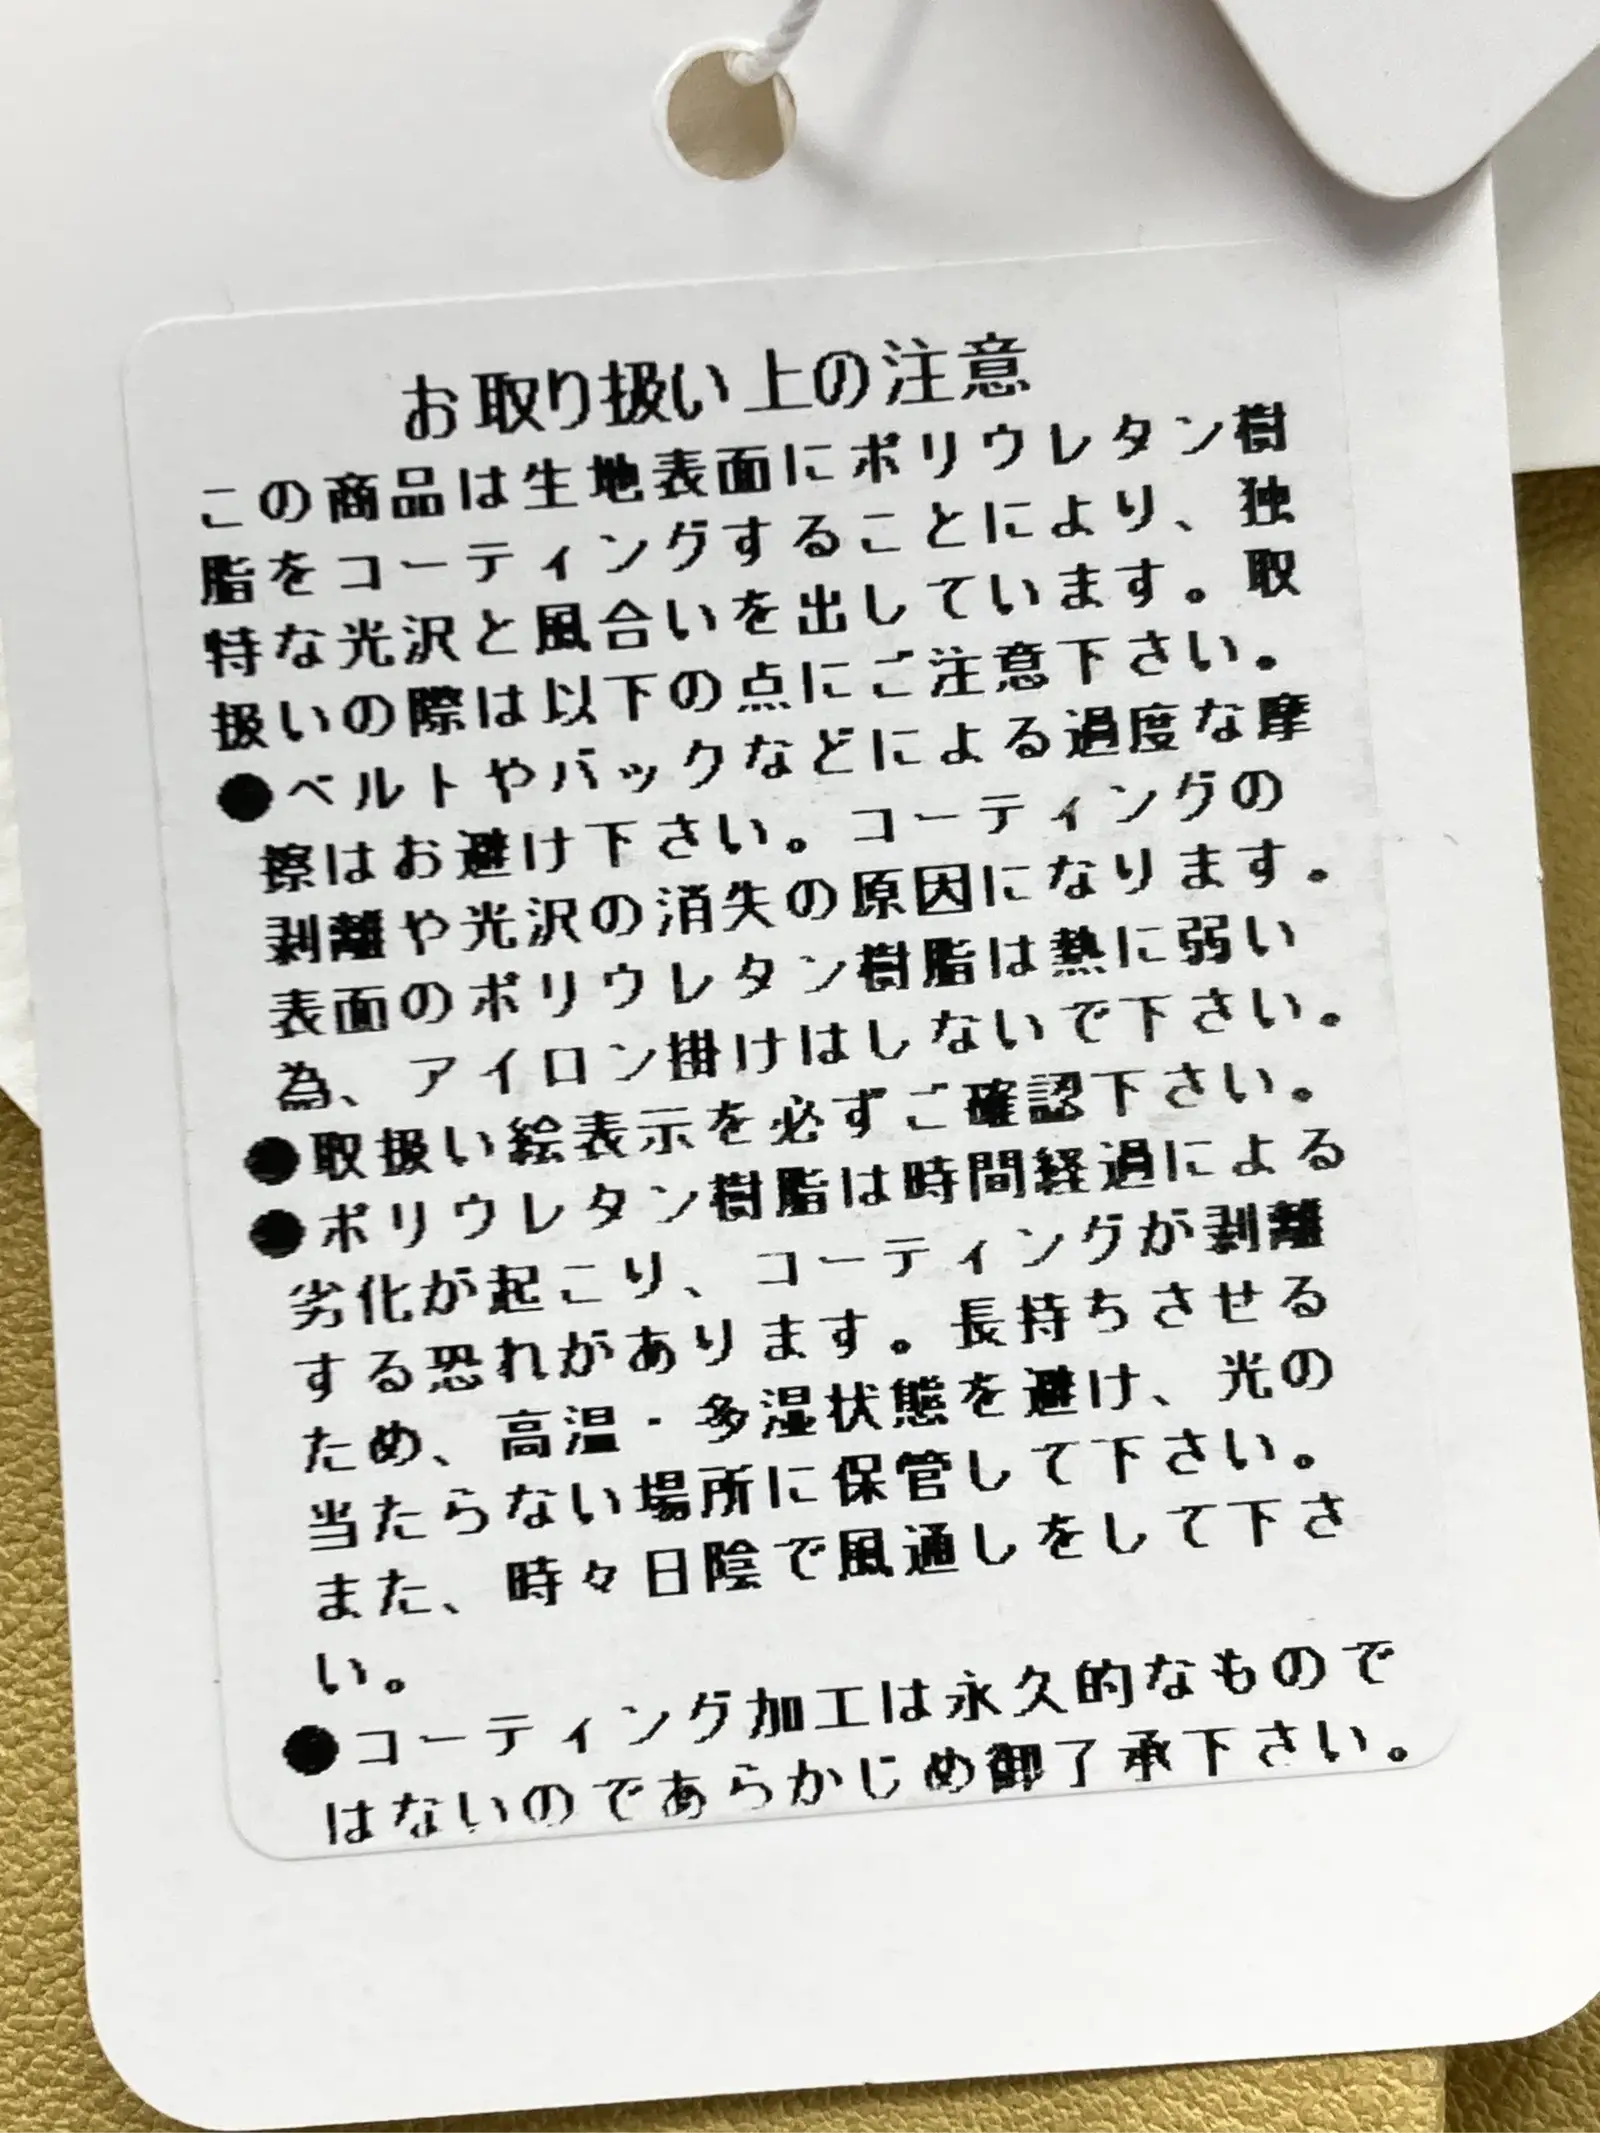 お取り扱い上の注意
この商品は生地表面にポリウレタン樹
脂をコーティングすることにより、独
特な光沢と風合いを出しています。取
扱いの際は以下の点にご注意下さい。
●ベルトやバックなどによる過度な摩
擦はお避け下さい。コーティングの
剥離や光沢の消失の原因になります。
表面のポリウレタン樹脂は熱に弱い
為、アイロン掛けはしないで下さい。
●取扱い絵表示を必ずご確認下さい。
●ポリウレタン樹脂は時間経過による
劣化が起こり、コーティングが剥離
する恐れがあります。長持ちさせる
ため、高温・多湿状態を避け、光の
当たらない場所に保管して下さい。
また、時々日陰で風通しをして下さ
い。
●コーティング加工は永久的なもので
はないのであらかじめ御了承下さい。